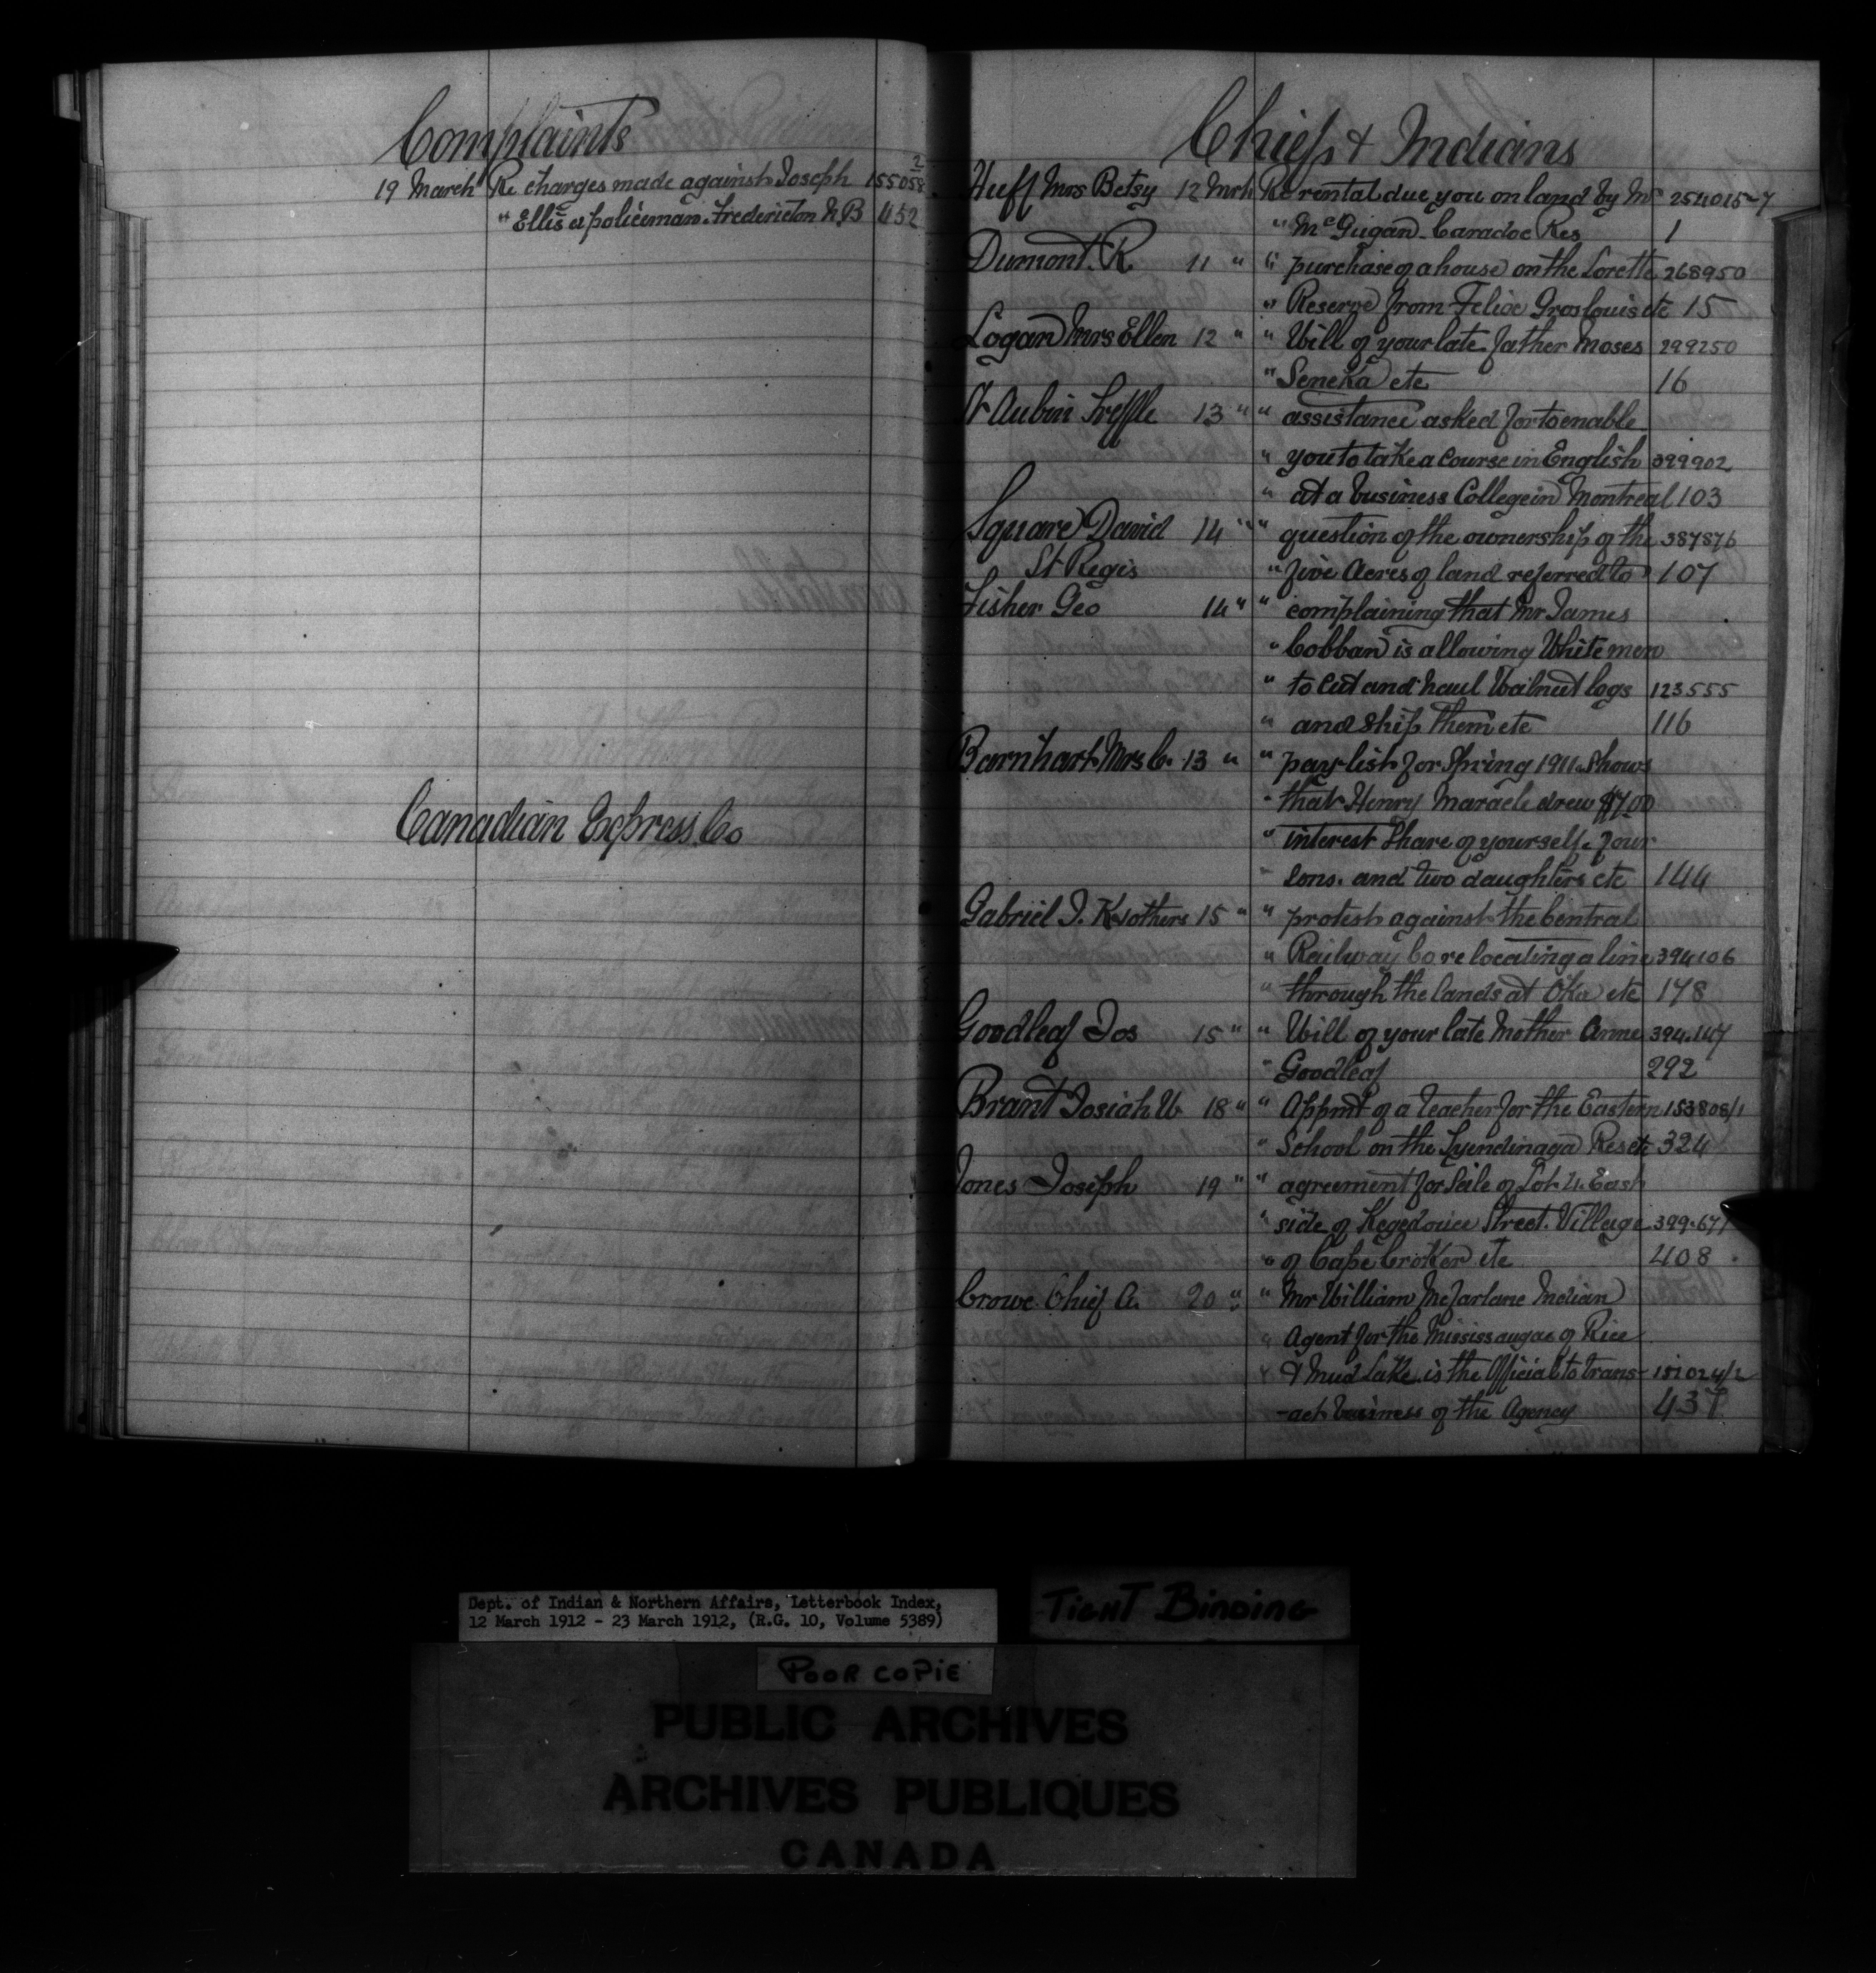 Complaints
19 March Re charges made against Joseph 155058 2
" Ellis a policeman Fredericton N B 452
Canadian Express Co
Chiefs & Indians
Huff Mrs Betsy 12 Mrh Re rental due you on land by Mr 254015-7
" McGugan Caradoc Res 1
Dumont R. 11 " " purchase of a house on the Lorette 268950
" Reserve from Felixe Groslouis etc 15
Logan Mrs Ellen 12 " " Will of your late father Moses 299250
" Seneka etc 16
St Aubin Treffle 13 " " assistance asked for to enable
" you to take a course in English 399902
" at a business College in Montreal 103
Square David 14 " " question of the ownership of the 387876
St Regis " five Acres of land referred to 107
Fisher Geo 14 " " complaining that Mr James
" Cobban is allowing White men
" to cut and haul Walnut logs 123555
" and ship them etc 116
Barnhart Mrs C. 13 " " pay-list for Spring 1911 shows
" that Henry Maracle drew
" interest share of yourself, four
" sons, and two daughters etc 144
Gabriel J. K & others 15 " " protest against the Central
" Railway Co re locating a line 394106
" through the lands at Oka etc 178
Goodleaf Jos 15 " " Will of your late Mother Anne 394,147
" Goodleaf 292
Brant Josiah W 18 " " Appmt of a teacher for the Eastern 153808/1
" School on the Tyendinaga Res etc 324
Jones Joseph 19 " " agreement for Sale of Lot 4. East
" side of Kegedonce Street. Village 399,677
" of Cape Croker etc 408
Crowe Chief A. 20 " " Mr William McFarlane Indian
" Agent for the Mississaugas of Rice
" & Mud Lake is the Official to trans- 151024/2
-act business of the Agency 437
Dept. of Indian & Northern Affairs, Letterbook Index,
12 March 1912 - 23 March 1912, (R.G. 10, Volume 5389)
TIGHT BINDING
POOR COPIE
PUBLIC ARCHIVES
ARCHIVES PUBLIQUES
CANADA